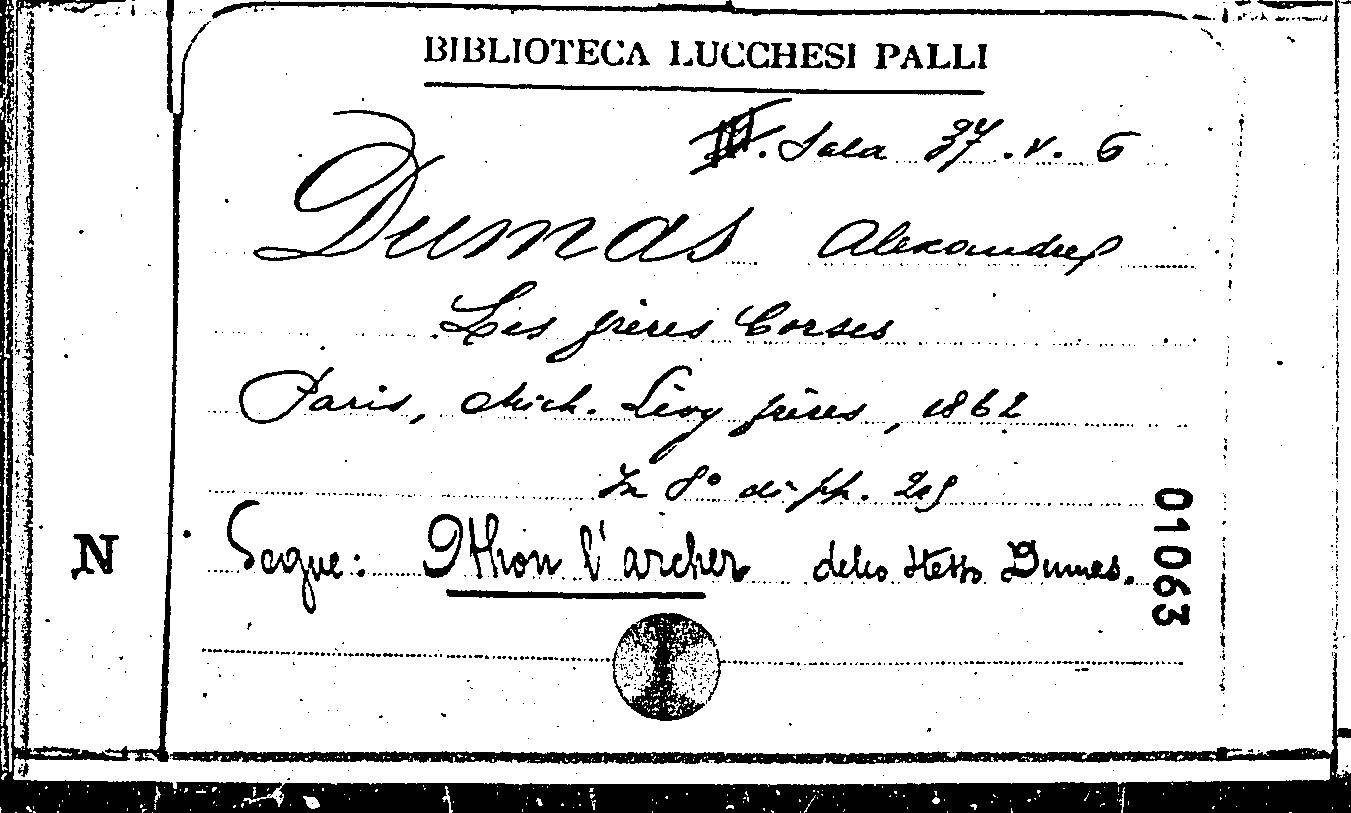 BIBLIOTECA LUCCHESI PALLI
Sala 37. v. 6
Dumas Alexandre
Les frères Corses
Paris, Mich. Lévy frères, 1862
In 8° di pp.
N
Segue: Othon l'archer dello stesso Dumas.
01063